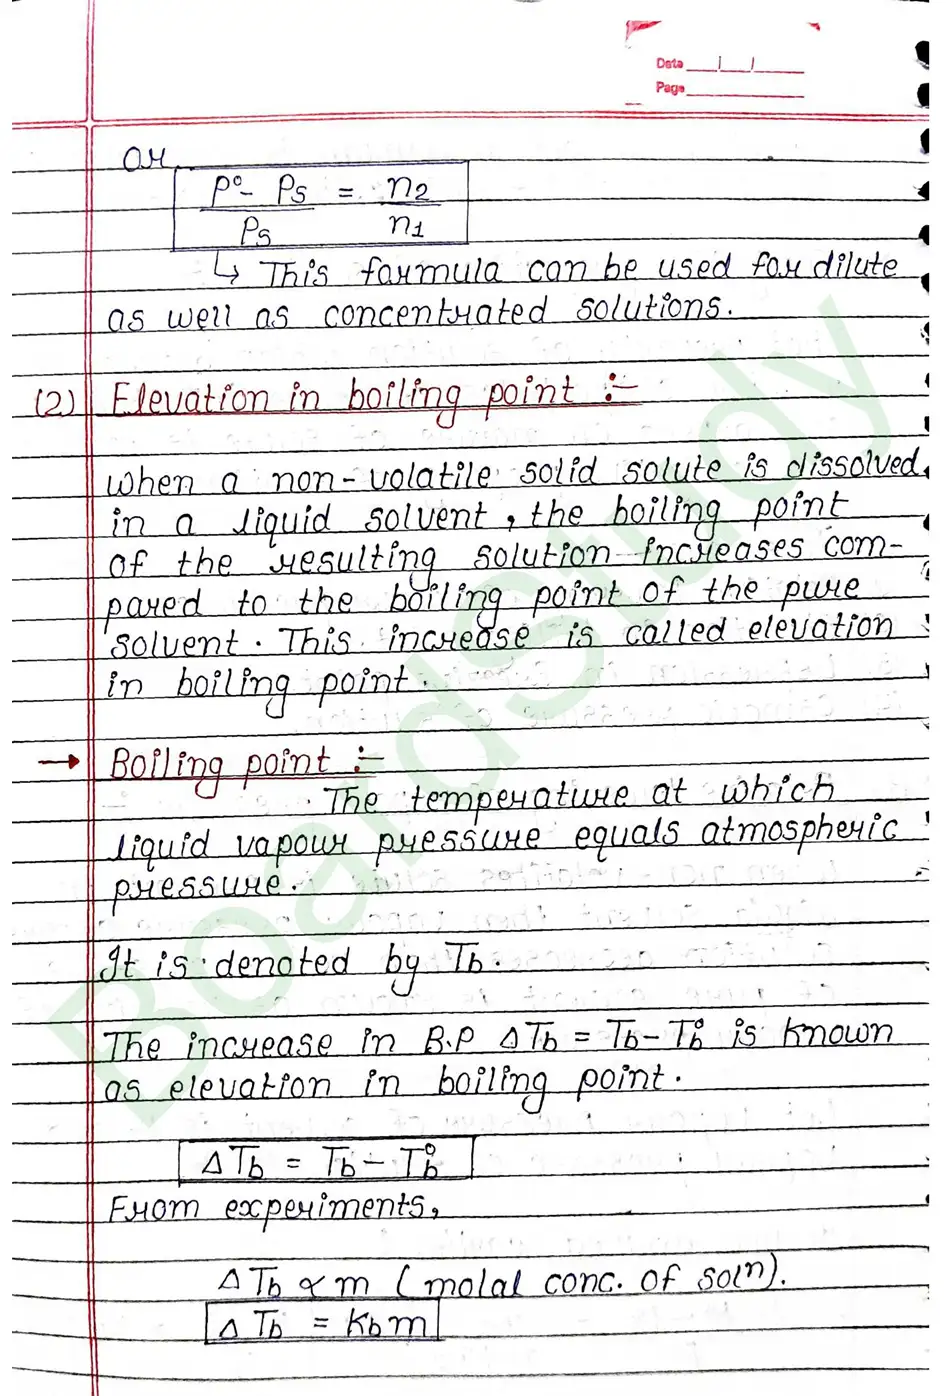 Date
Page
or
P° - Ps / Ps = n2 / n1
↳ This formula can be used for dilute
as well as concentrated solutions.
(2) Elevation in boiling point :-
when a non-volatile solid solute is dissolved
in a liquid solvent, the boiling point
of the resulting solution increases com-
pared to the boiling point of the pure
solvent. This increase is called elevation
in boiling point.
→ Boiling point :-
The temperature at which
liquid vapour pressure equals atmospheric
pressure.
It is denoted by Tb.
The increase in B.P ΔTb = Tb - T°b is known
as elevation in boiling point.
ΔTb = Tb - T°b
From experiments,
ΔTb ∝ m (molal conc. of solⁿ).
ΔTb = Kbm
BoardStudy